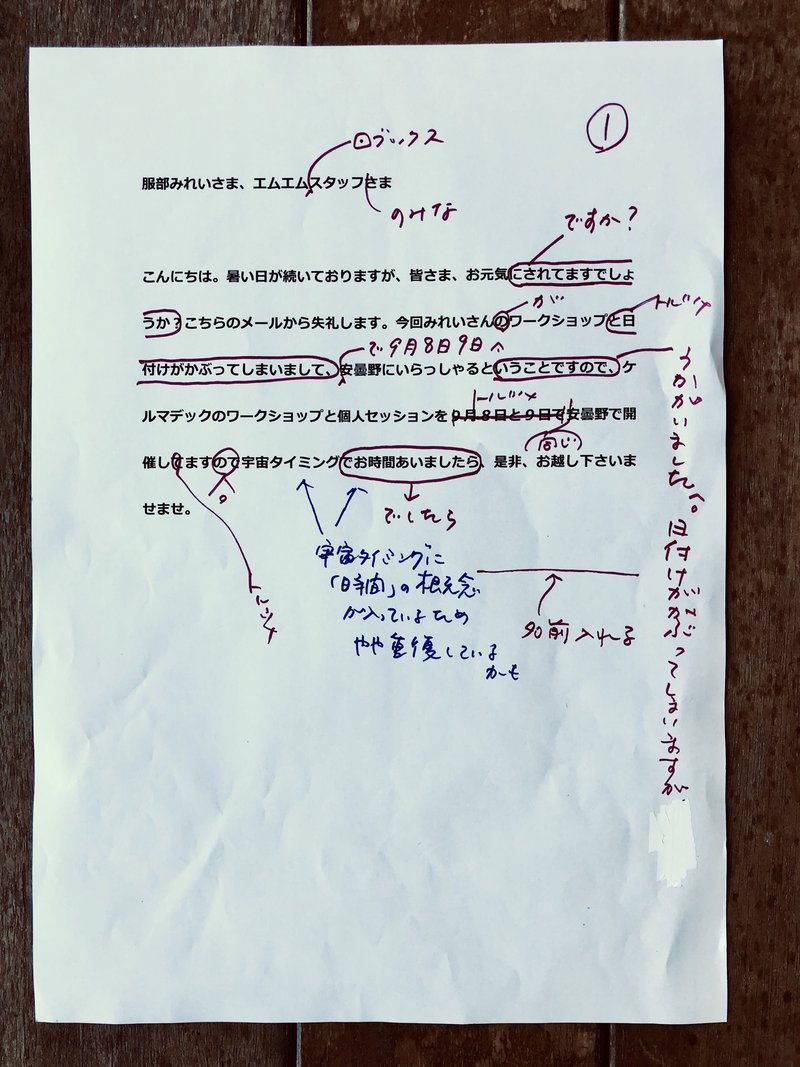 1
・ブックス
服部みれいさま、エムエムスタッフさま
のみな
ですか？
こんにちは。暑い日が続いておりますが、皆さま、お元気にされてますでしょ
が
トルツメ
うか？こちらのメールから失礼します。今回みれいさんのワークショップと日
で9月8日9日へ
付けがかぶってしまいまして、安曇野にいらっしゃるということですので、ケ
トルツメ
ルマデックのワークショップと個人セッションを９月８日と９日で安曇野で開
同じ
催してますので宇宙タイミングでお時間あいましたら、是非、お越し下さいま
。
でしたら
せませ。
トルツメ
宇宙タイミングに
「時間」の概念
が入っているため
やや重複している
かも
うかがいました。日付けがかぶってしまいますが